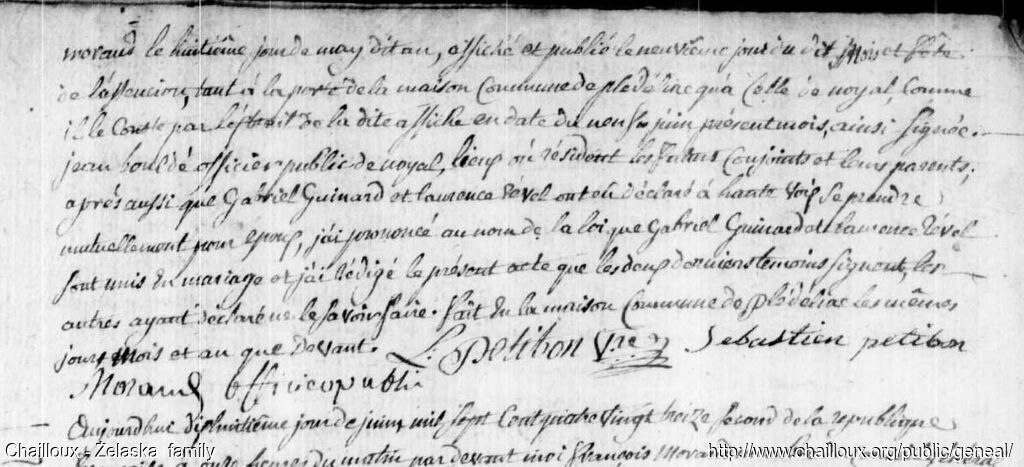 morand le huitième jour de may dit an, affiché et publié le neuvième jour du dit mois et fête
de l'assencion, tant à la porte de la maison Commune de plédéliac qu'à Celle de noyal, Comme
il le Conste par l'extrait de la dite affiche en date du neuf juin présent mois, ainsi signée.
jean houldé officier public de noyal, lieux où résident les futurs Conjoints et leurs parents;
après aussi que Gabriel Guinard et laurence révél ont eu déclaré à haute voix se prendre
mutuellement pour époux, j'ai prononcé au nom de la loi que Gabriel Guinard et laurence révél
sont unis en mariage et j'ai rédigé le présent acte que les deux derniers temoins signent, les
autres ayant déclaré ne le savoir faire. fait en la maison Commune de plédéliac les mêmes
jour, mois et an que devant. L. petibon Sebastien petibon
Morand officier public
Aujourdhui dixhuitième jour de juin mil sept Cent quatre vingt treize second de la republique
onze heures du matin par devant moi françois Morand
Chailloux - Zelaska family http://www.chailloux.org/public/geneal/